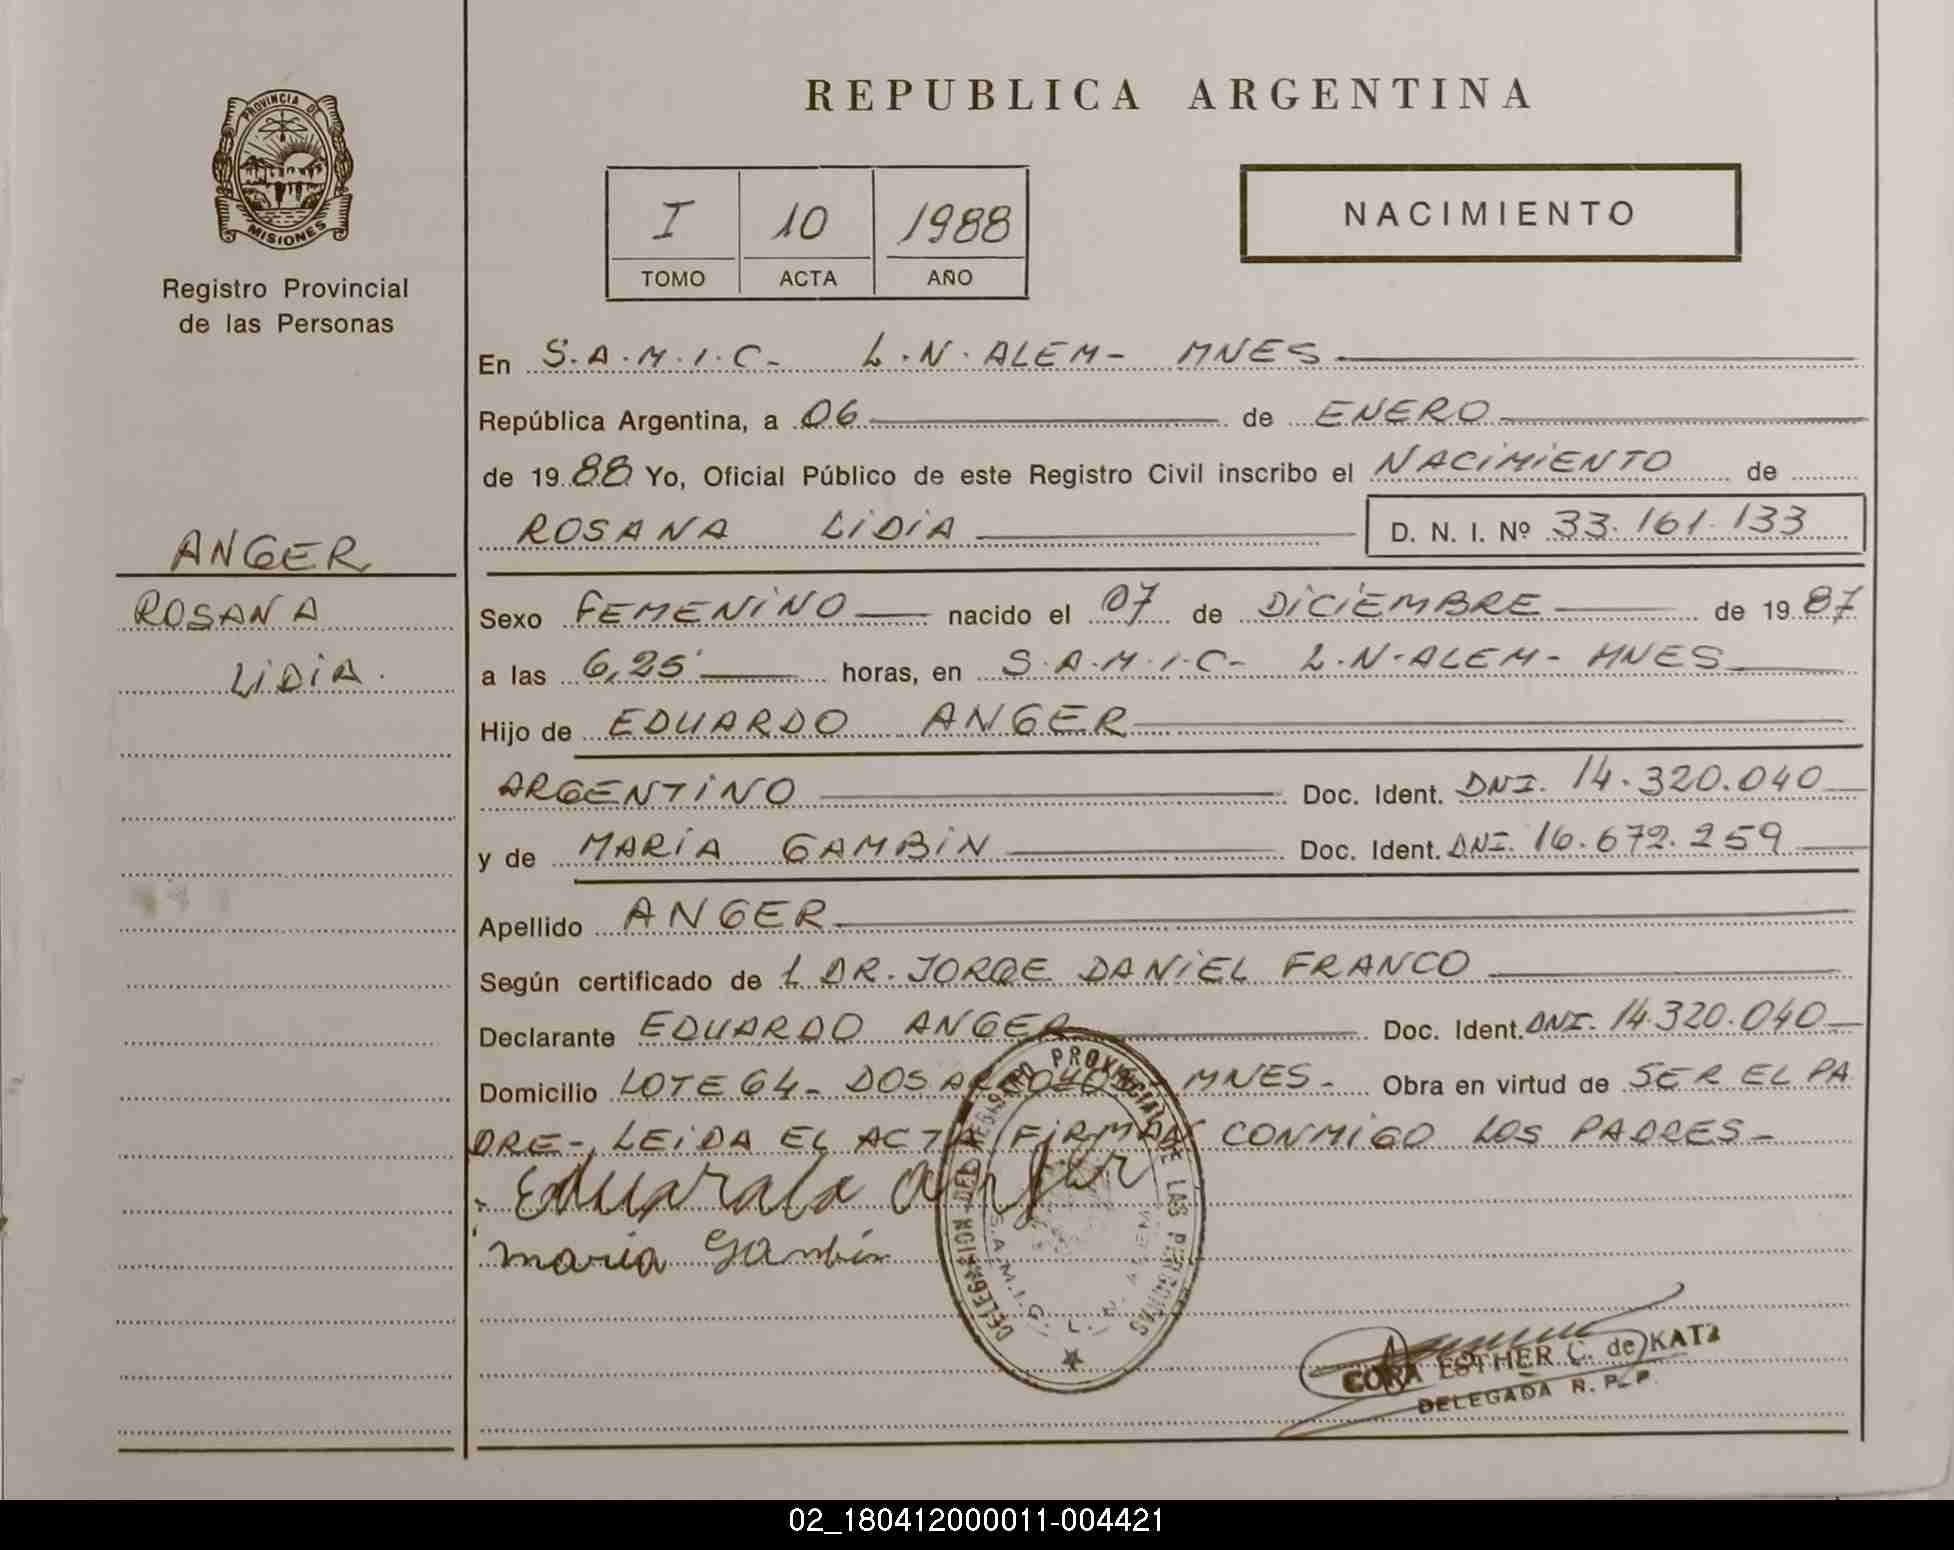 REPUBLICA ARGENTINA
PROVINCIA DE
MISIONES
Registro Provincial
de las Personas
I 10 1988
TOMO ACTA AÑO
NACIMIENTO
ANGER
ROSANA
LIDIA.
En S.A.M.I.C- L.N.ALEM- MNES
República Argentina, a 06 de ENERO
de 1988 Yo, Oficial Público de este Registro Civil inscribo el NACIMIENTO de
ROSANA LIDIA D. N. I. Nº 33.161.133
Sexo FEMENINO nacido el 07 de DICIEMBRE de 1987
a las 6,25 horas, en S.A.M.I.C- L.N-ALEM- MNES
Hijo de EDUARDO ANGER
ARGENTINO Doc. Ident. DNI. 14.320.040
y de MARÍA GAMBIN Doc. Ident. DNI. 16.672.259
Apellido ANGER
Según certificado de L DR. JORGE DANIEL FRANCO
Declarante EDUARDO ANGER Doc. Ident. DNI. 14.320.040
Domicilio LOTE 64- DOS ARROYOS MNES- Obra en virtud de SER EL PA
DRE-, LEIDA EL ACTA FIRMAN CONMIGO LOS PADRES-
Eduardo Anger
maria Gambin
DELEGACION DEL REGISTRO PROVINCIAL DE LAS PERSONAS
S.A.M.I.C. L. N. ALEM
CORA ESTHER C. de KATZ
DELEGADA R. P. P.
02_180412000011-004421